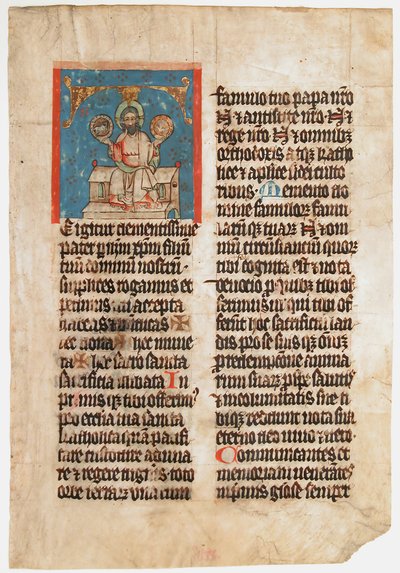 E igitur clementissime
pater p ihm xpm filium
tuum dominum nostrum
supplices rogamus et
petimus uti accepta
habeas et bndicas ✠
hec dona ✠ hec mune
ra ✠ hec sancta
sacrificia illibata In
primis que tibi offerim9
pro ecclia tua sancta
katholica quam pacifi
care custodire aduna
re et regere digneris toto
orbe terrarum una cum
famulo tuo papa nro
N et antistite nro N et
rege nro N et omnibus
orthodoxis atque katho
lice et aplice fidei culto
ribus Memento do
mine famulorum famu
larumque tuarum N et om
nium circumstantium quor
tibi cognita est et nota
devocio p quibus tibi of
ferimus ul qui tibi of
ferunt hoc sacrificium lau
dis pro se suisque omibus
p redempcione anima
rum suarum p spe salutis
et incolumitatis sue ti
bique reddunt vota sua
eterno deo vivo et vero
Communicantes et
memoriam venerantes
inprimis gliose semper